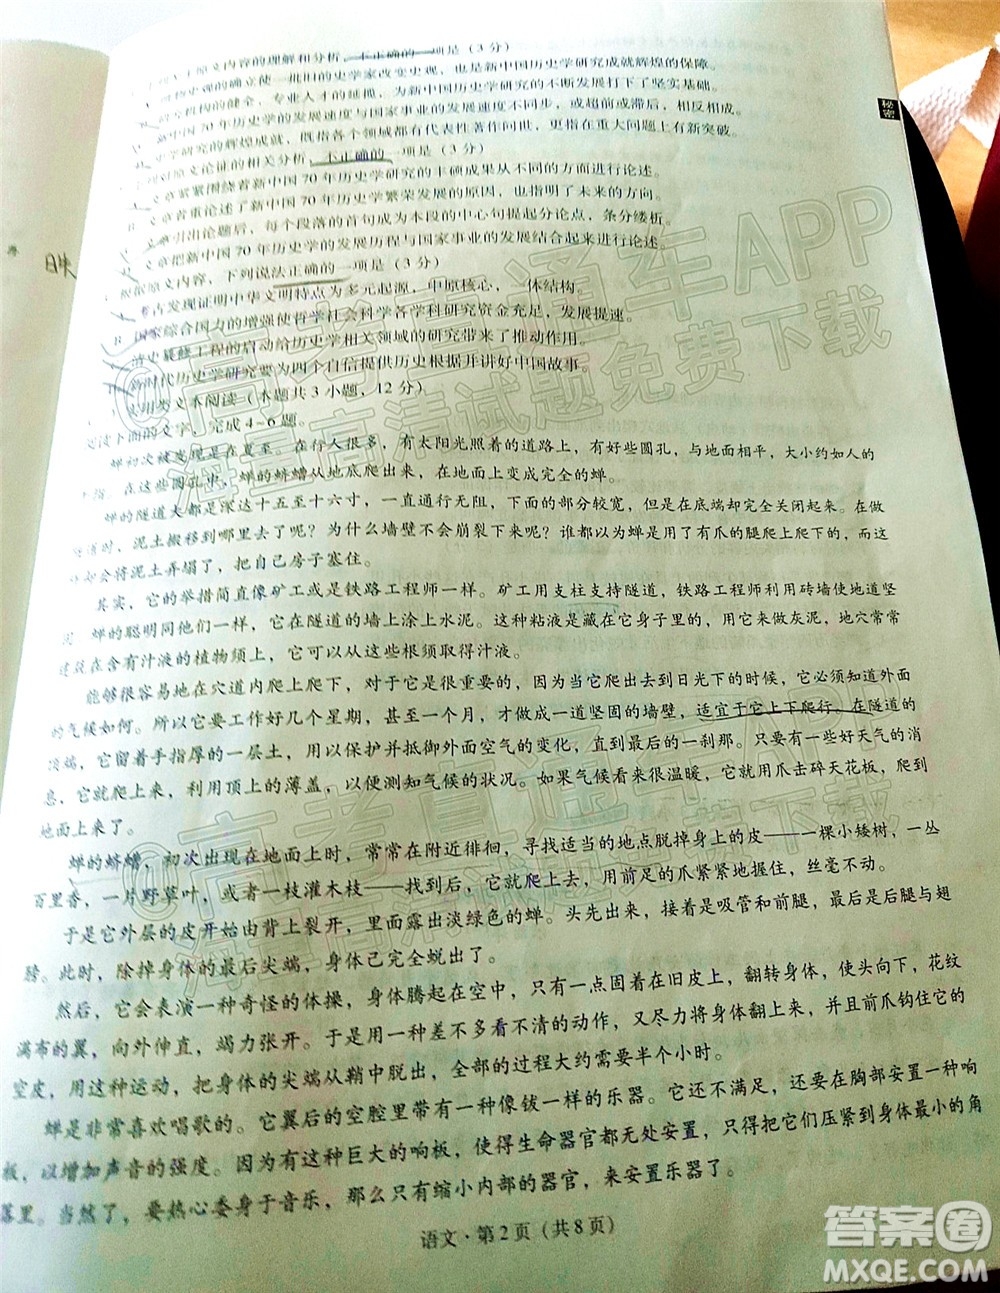 于原文内容的理解和分析,不正确的一项是(3分)
物史观的确立使一批旧的史学家改变史观,也是新中国历史学研究成就辉煌的保障。
究机构的健全,专业人才的延揽,为新中国历史学研究的不断发展打下了坚实基础。
新中国70年历史学的发展速度与国家事业的发展不同步,或超前或滞后,相反相成。
史学研究的辉煌成就,既指各个领域都有代表性著作问世,更指在重大问题上有新突破。
对原文论证的相关分析,不正确的一项是(3分)
文章紧紧围绕着新中国70年历史学研究的丰硕成果从不同的方面进行论述。
B 文章着重论述了新中国70年历史学繁荣发展的原因,也指明了未来的方向。
文章引出论题后,每个段落的首句成为本段的中心句提分论点,条分缕析。
文章把新中国70年历史学的发展历程与国家事业的发展结合起来进行论述。
根据原文内容,下列说法正确的一项是(3分)
考古发现证明中华文明特点为多元起源,中原核心,一体结构。
B 国家综合国力的增强使哲学社会科学各学科研究资金充足,发展提速。
清史纂修工程的启动给历史学相关领域的研究带来了推动作用。
新时代历史学研究要为四个自信提供历史根据并讲好中国故事。
实用类文本阅读(本题共3小题,12分)
阅读下面的文字,完成4~6题。
蝉初次被发现是在夏至。在行人很多,有太阳光照着的道路上,有好些圆孔,与地面相平,大小约如人的
手指。在这些圆孔中,蝉的蛴螬从地底爬出来,在地面上变成完全的蝉。
蝉的隧道大都是深达十五至十六寸,一直通行无阻,下面的部分较宽,但是在底端却完全关闭起来。在做
隧道时,泥土搬移到哪里去了呢?为什么墙壁不会崩裂下来呢?谁都以为蝉是用了有爪的腿爬上爬下的,而这
却会将泥土弄塌了,把自己房子塞住。
其实,它的举措简直像矿工或是铁路工程师一样。矿工用支柱支持隧道,铁路工程师利用砖墙使地道坚
固。蝉的聪明同他们一样,它在隧道的墙上涂上水泥。这种粘液是藏在它身子里的,用它来做灰泥,地穴常常
建筑在含有汁液的植物须上,它可以从这些根须取得汁液。
能够很容易地在穴道内爬上爬下,对于它是很重要的,因为当它爬出去到日光下的时候,它必须知道外面
的气候如何。所以它要工作好几个星期,才做成一道坚固的墙壁,适宜于它上下爬行。在隧道的
顶端,它留着手指厚的一层土,用以保护并抵御外面空气的变化,直到最后的一刹那。只要有一些好天气的消
息,它就爬上来,利用顶上的薄盖,以便测知气候的状况。如果气候看来很温暖,它就用爪击碎天花板,爬到
地面上来了。
蝉的蛴螬,初次出现在地面上时,常常在附近徘徊,寻找适当的地点脱掉身上的皮——一棵小矮树,一丛
百里香,一片野草叶,或者一枝灌木枝——找到后,它就爬上去,用前足的爪紧紧地握住,丝毫不动。
于是它外层的皮开始由背上裂开,里面露出淡绿色的蝉。头先出来,接着是吸管和前腿,最后是后腿与翅
膀。此时,除掉身体的最后尖端,身体已完全蜕出了。
然后,它会表演一种奇怪的体操,身体腾起在空中,只有一点固着在旧皮上,翻转身体,使头向下,花纹
满布的翼,向外伸直,竭力张开。于是用一种差不多看不清的动作,又尽力将身体翻上来,并且前爪钩住它的
空皮,用这种运动,把身体的尖端从鞘中脱出,全部的过程大约需要半个小时。
蝉是非常喜欢唱歌的。它翼后的空腔里带有一种像钹一样的乐器。它还不满足,还要在胸部安置一种响
板,以增加声音的强度。因为有这种巨大的响板,使得生命器官都无处安置,只得把它们压紧到身体最小的角
落里。当然了,要热心委身于音乐,那么只有缩小内部的器官,来安置乐器了。
语文·第2页(共8页)
秘密
高考直通车APP
海量高清试题免费下载
高考直通车APP
海量高清试题免费下载
答案圈
MXQE.COM